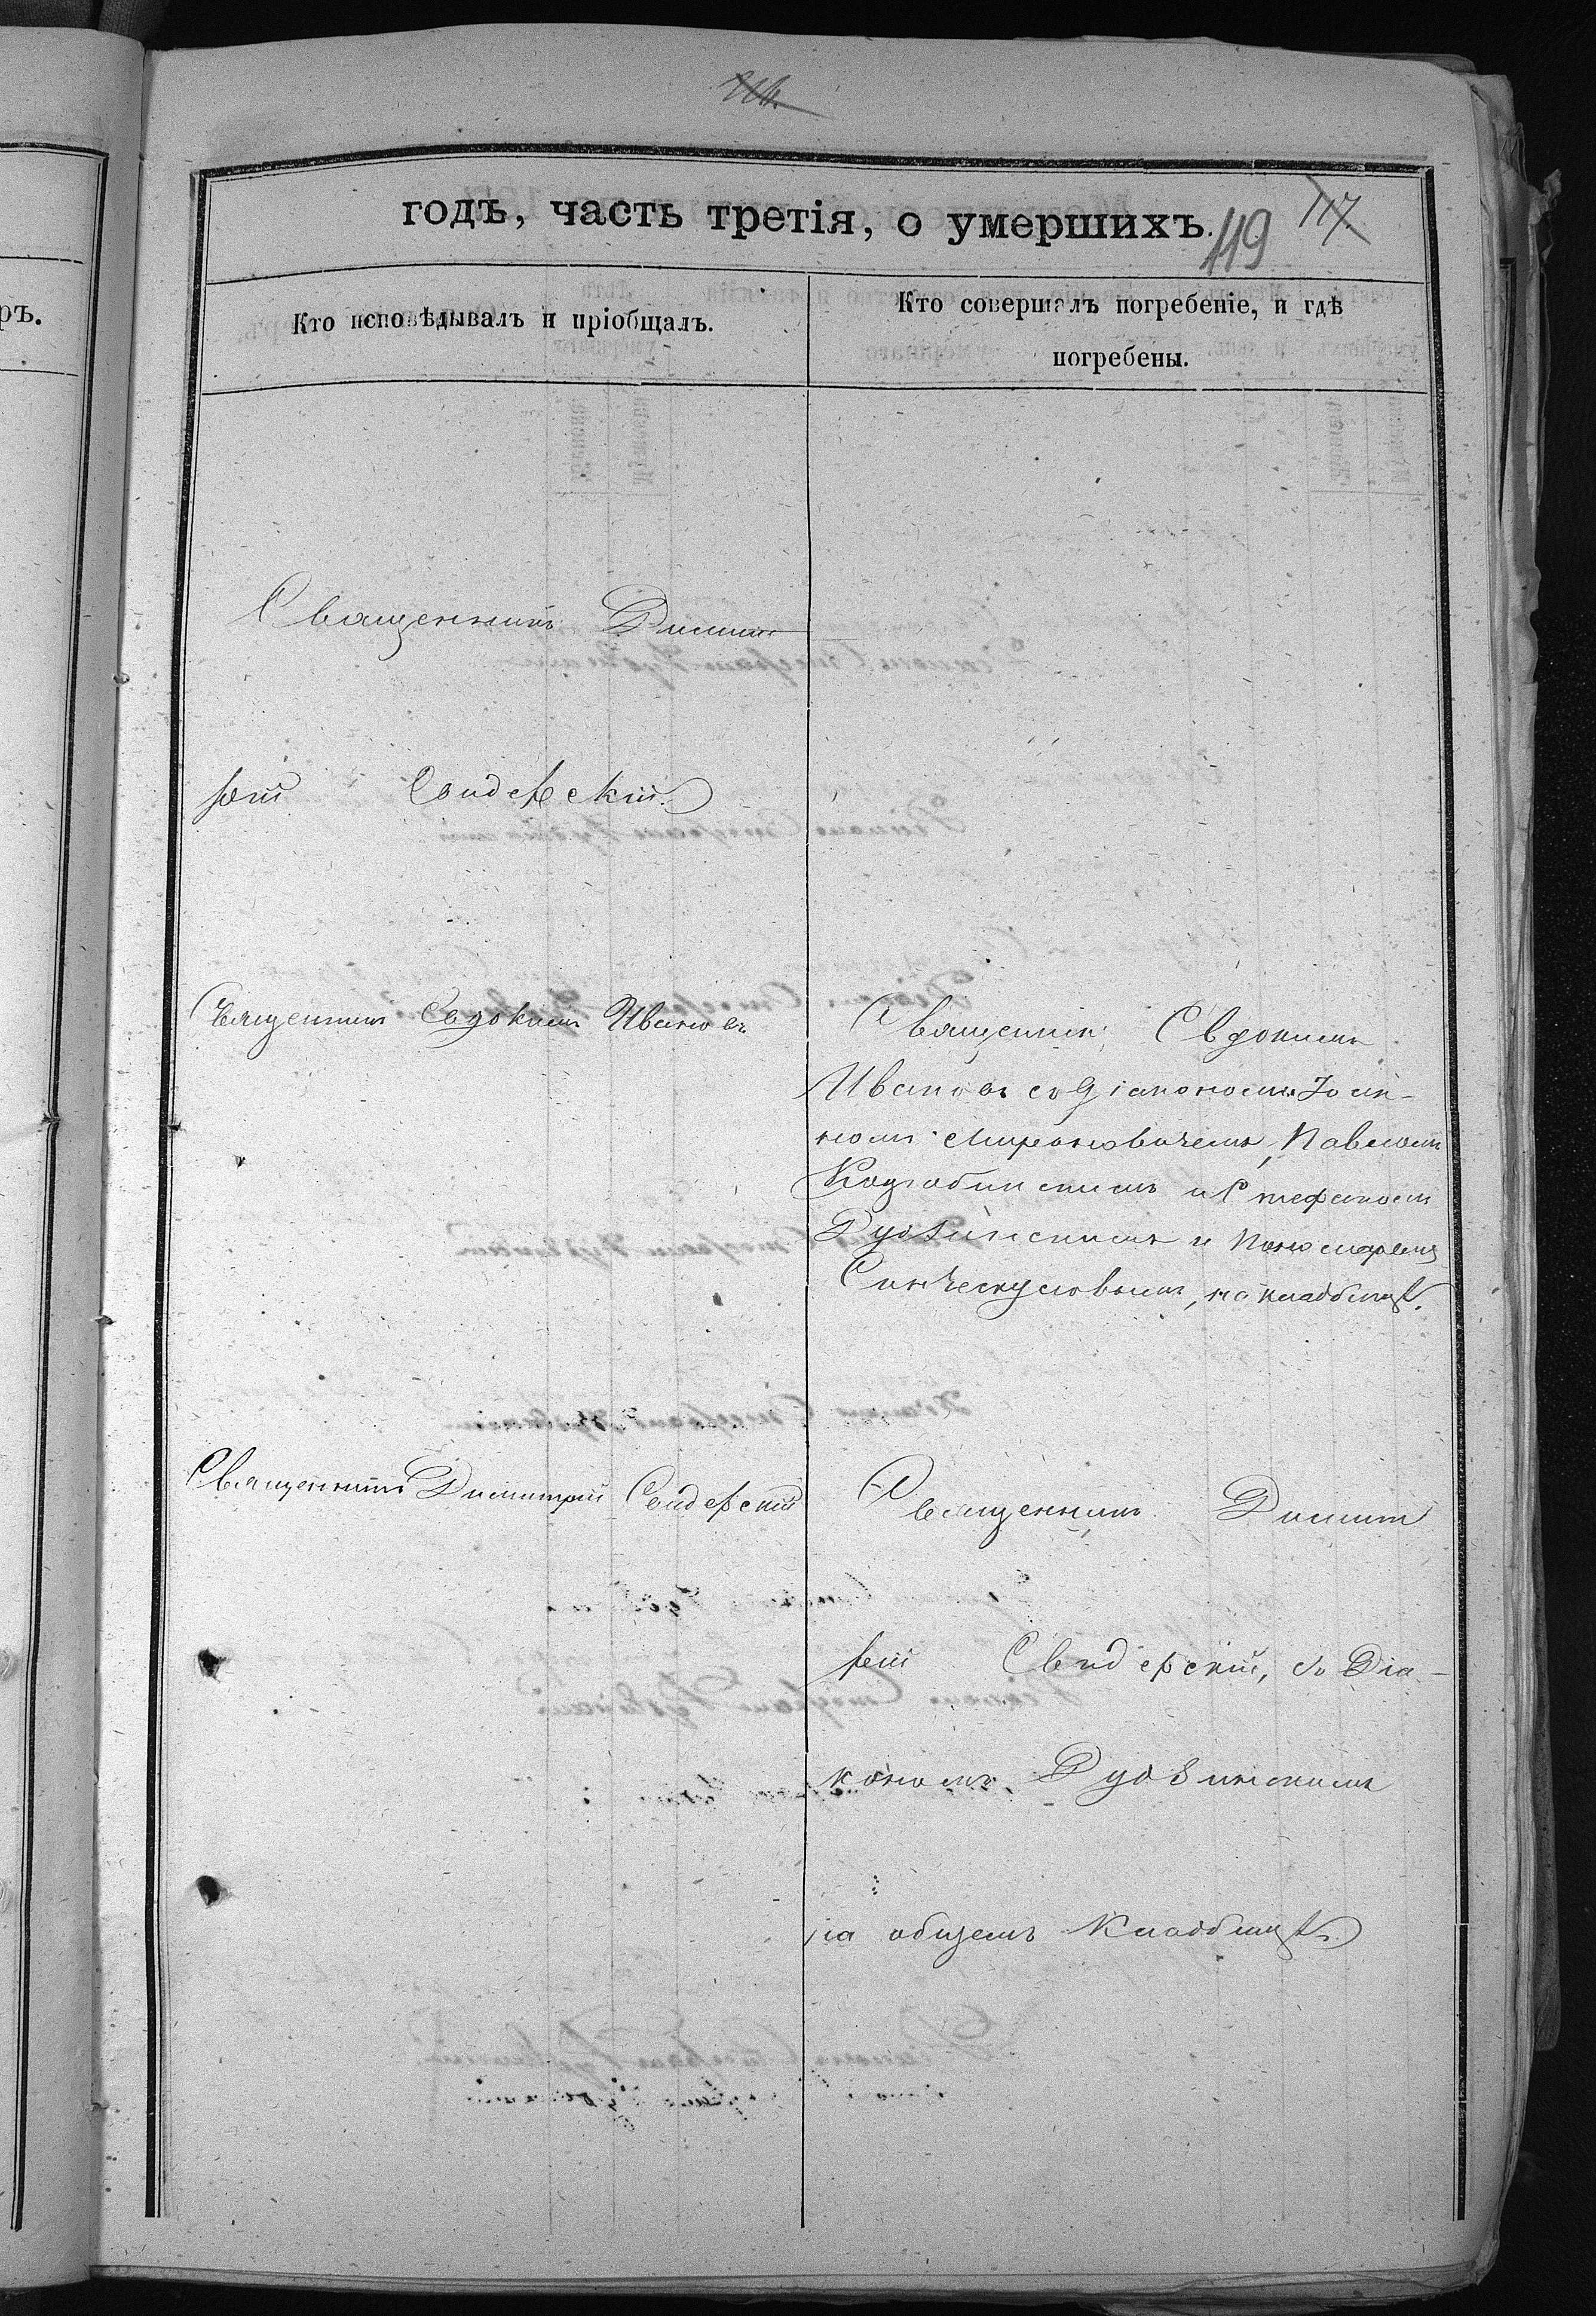 годъ, часть третія, о умершихъ.
119
117
Кто исповѣдывалъ и пріобщалъ.
Кто совершалъ погребеніе, и гдѣ
погребены.
ръ.
Священникъ Димит
рій Свидерскій.
Священникъ Евдокимъ Ивановъ
Священникъ Евдокимъ
Ивановъ съ діакономъ Іоан-
номъ Мироновичемъ, Павломъ
и Стефаномъ
Рудзинскимъ и пономаремъ
на кладбищѣ.
Священникъ Димитрій Свидерскій
Священникъ Димит
рій Свидерскій, съ Діа-
кономъ Рудзинскимъ
на общемъ кладбищѣ.